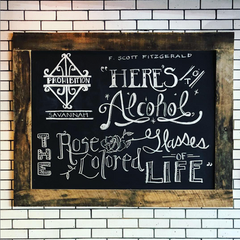 PROHIBITION
SAVANNAH
F. SCOTT FITZGERALD
"HERE'S to
Alcohol,
THE Rose Colored Glasses
OF
LIFE"